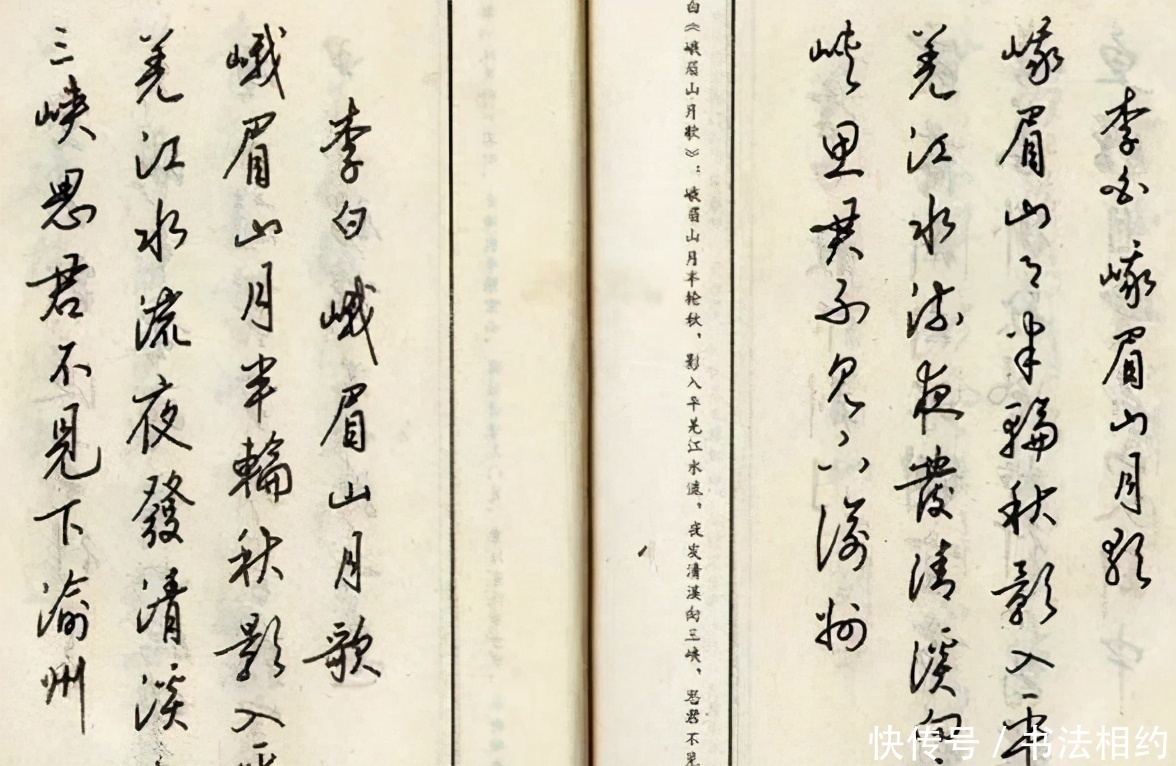 李白 峨眉山月歌
峨眉山月半輪秋影入平
羌江水流夜發清溪向
峽思君不見下渝州
白《峨眉山月歌》：峨眉山月半轮秋，影入平羌江水流，夜发清溪向三峡，思君不见
李白峨眉山月歌
峨眉山月半輪秋影入平
羌江水流夜發清溪
三峽思君不見下渝州
快传号 / 书法相约